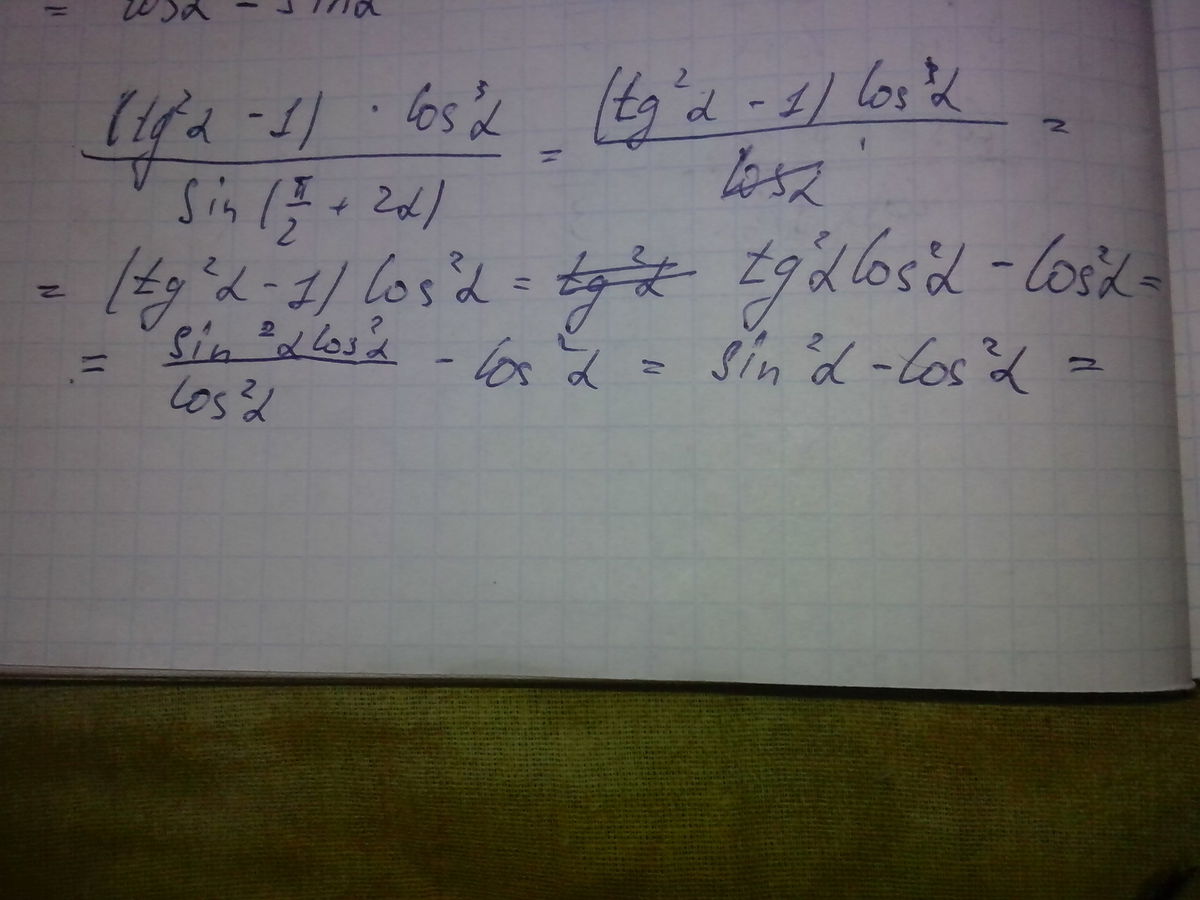 = cosα - sinα
(tg²α - 1) · cos³α / sin(π/2 + 2α) = (tg²α - 1) cos³α / cosα =
= (tg²α - 1) cos²α = tg²α tg²α cos²α - cos²α =
= sin²α cos²α / cos²α - cos²α = sin²α - cos²α =